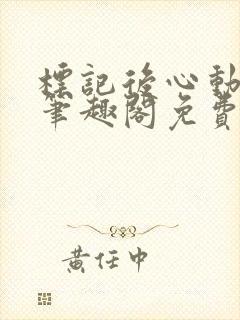 標記後心動
筆趣閣免費
黃任中